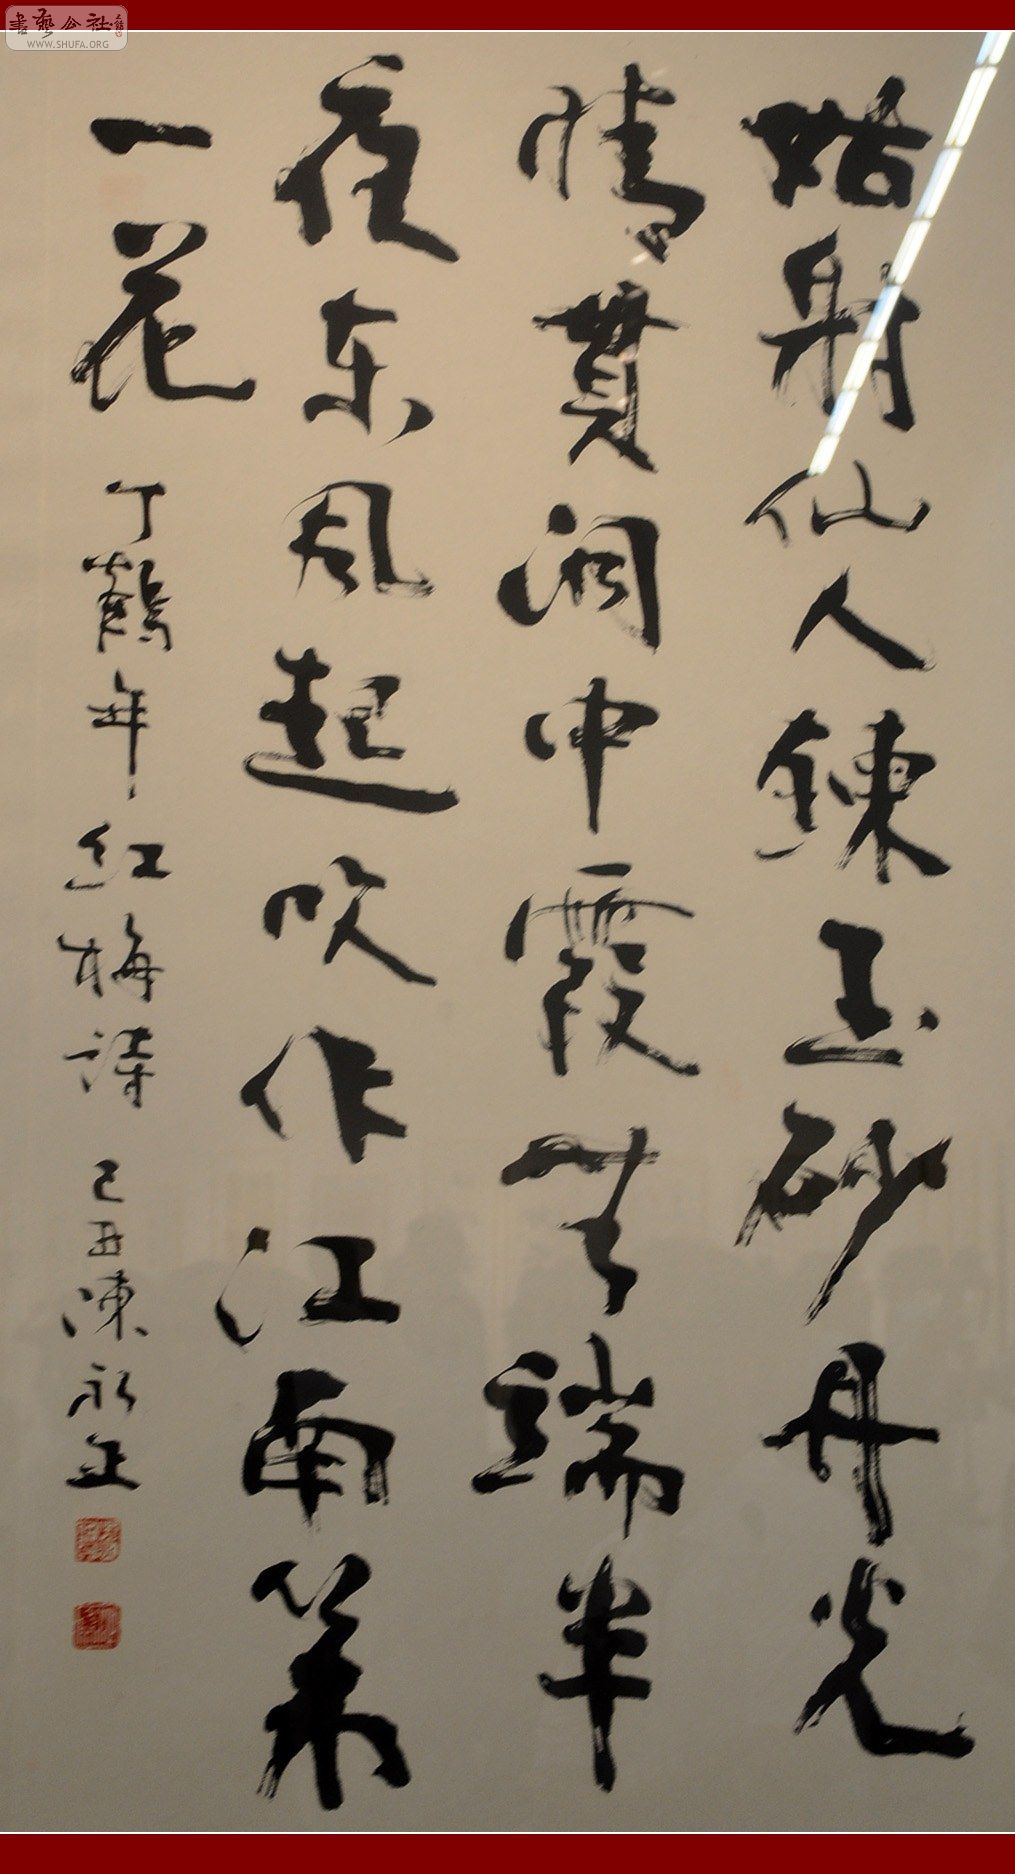 姑射仙人鍊玉砂丹光
晴貫洞中霞無端半
夜东风起吹作江南第
一花 丁鶴年红梅诗 己丑陳永正
書藝公社
WWW.SHUFA.ORG